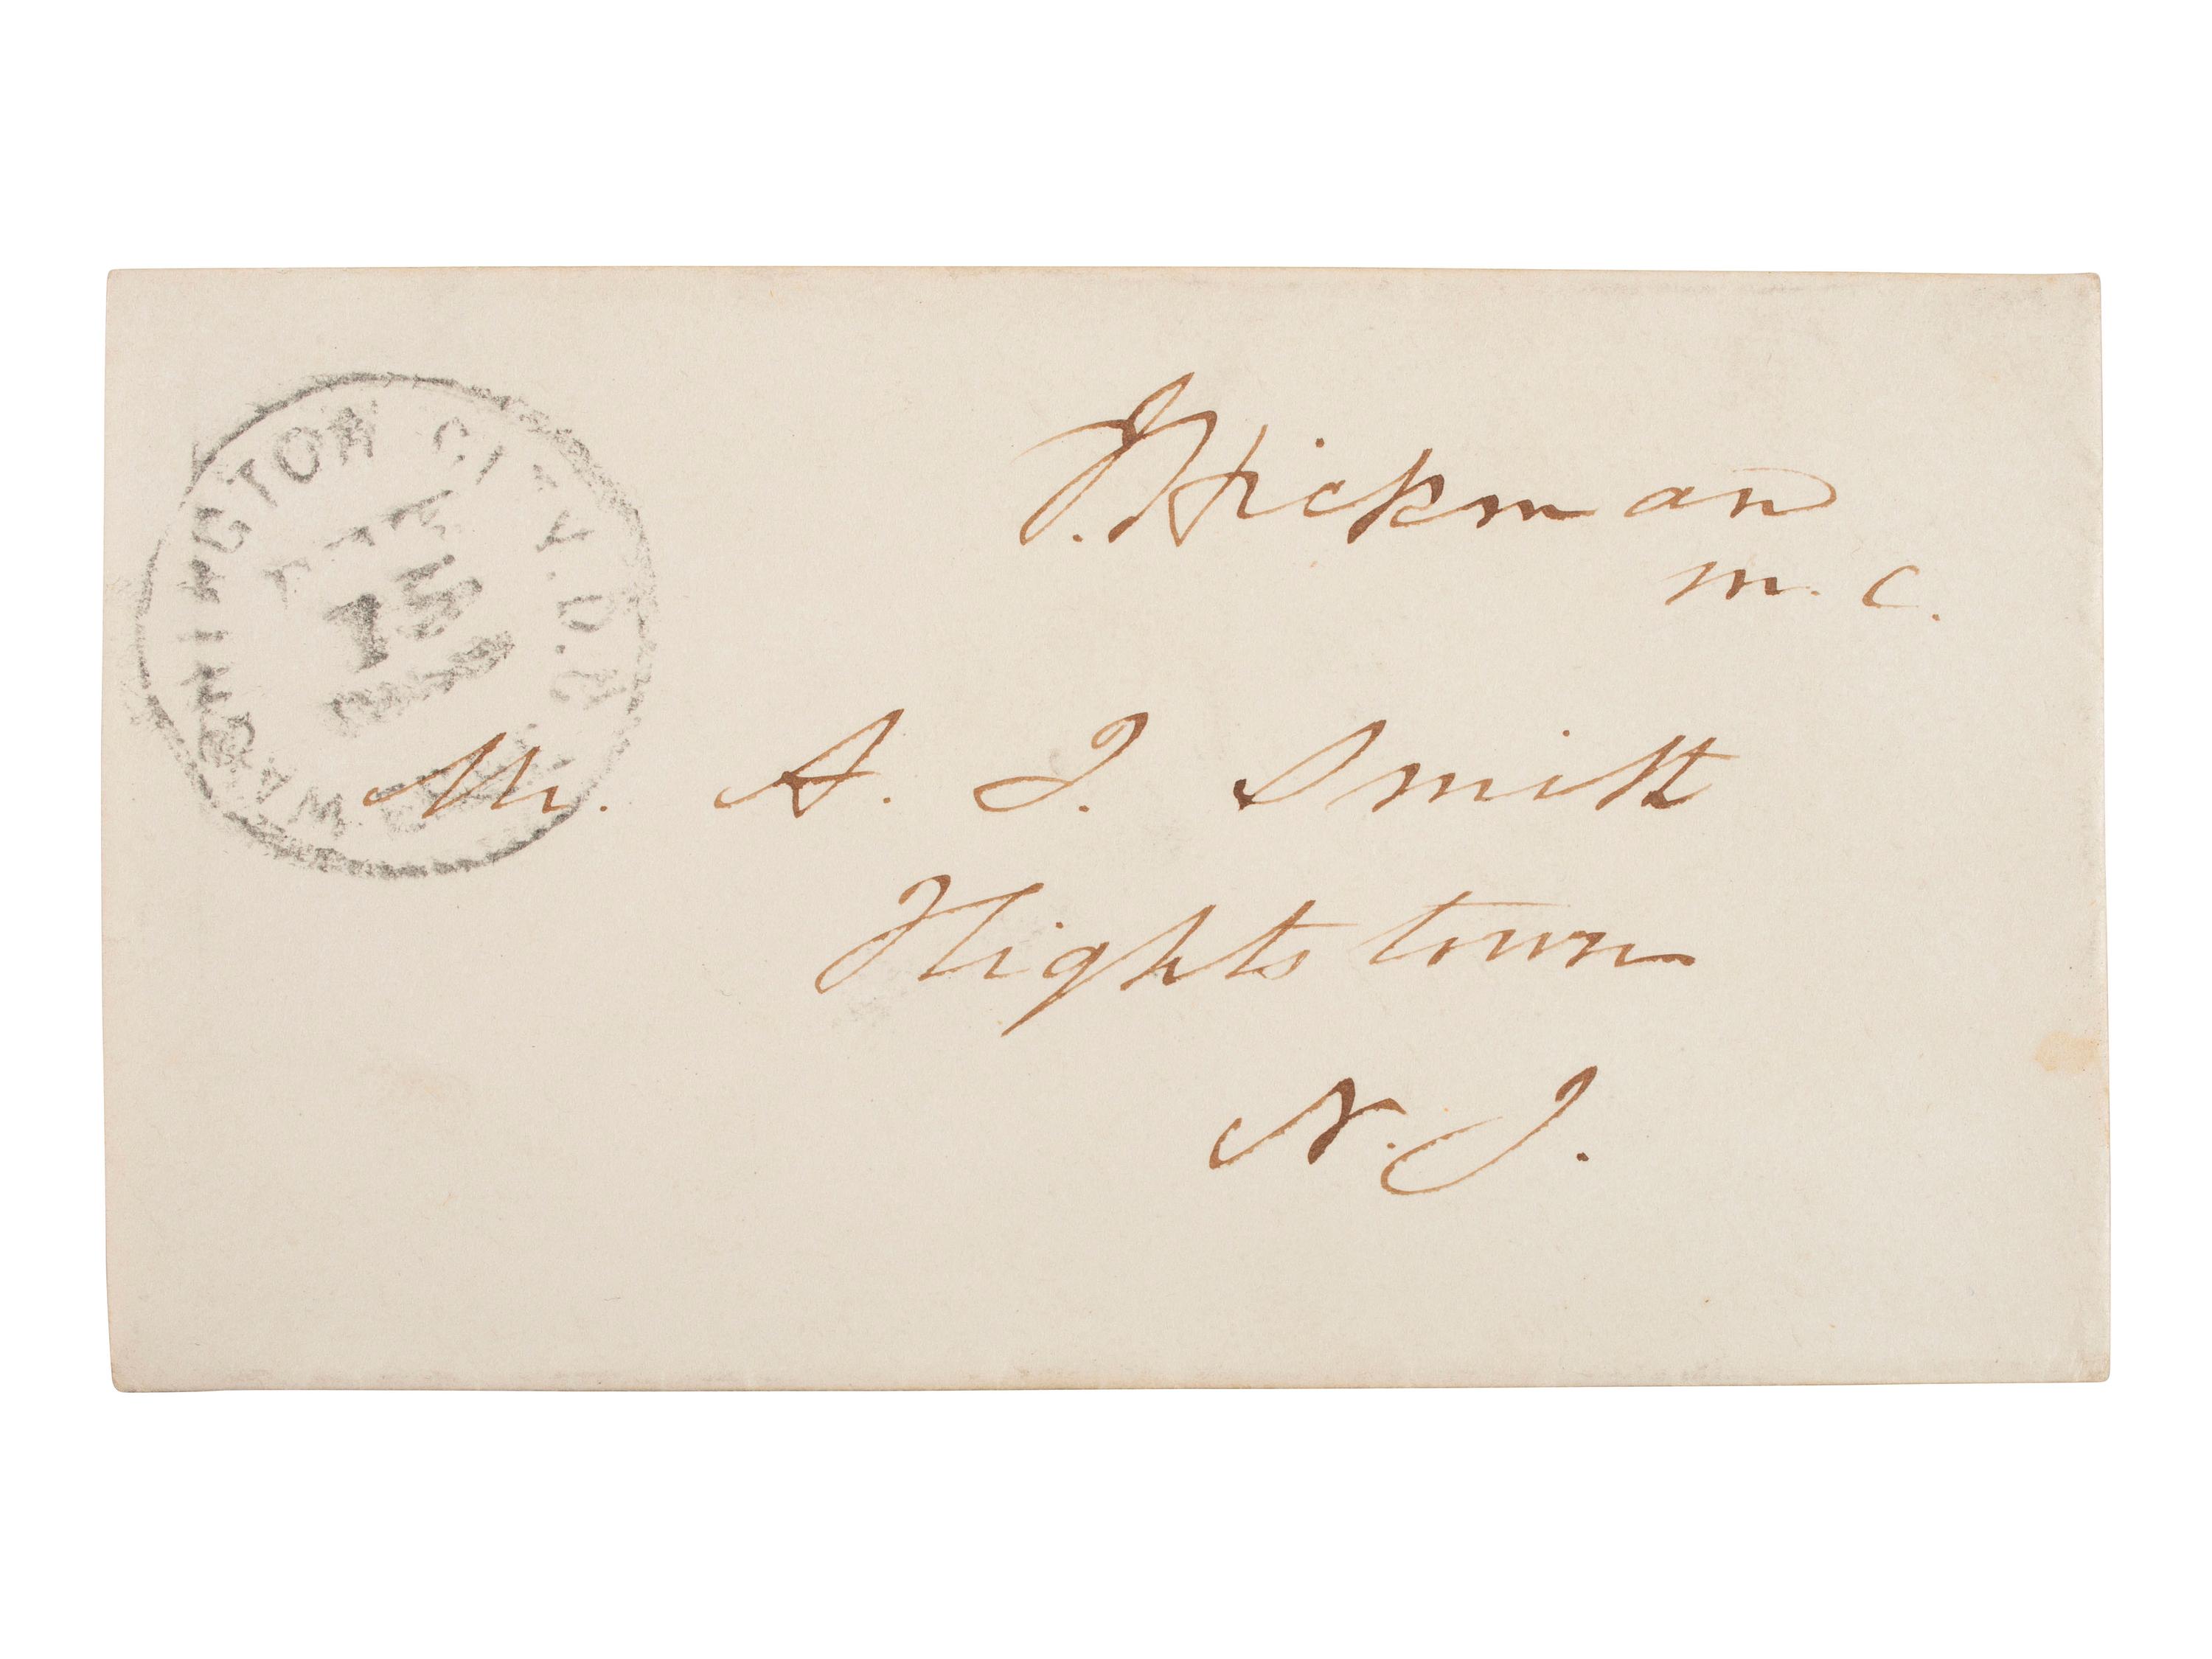 WASHINGTON CITY. D.C.
J. Hickman
M. C.
Mr. A. J. Smith
Hightstown
N. J.